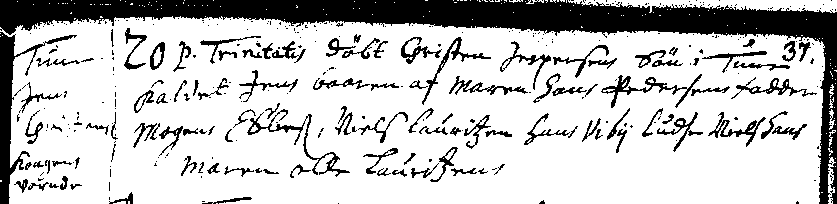 37.
Tune
Jens
Christens
Kongens
vornde
20 p. Trinitatis döbt Christen Jespersens Sön i Tune
Kaldet Jens baaren af Maren Hans Pedersens fadder
Mogens Ebbes, Niels Lauritzen Hans Viby Niels Hans
Maren olle Lauritzens